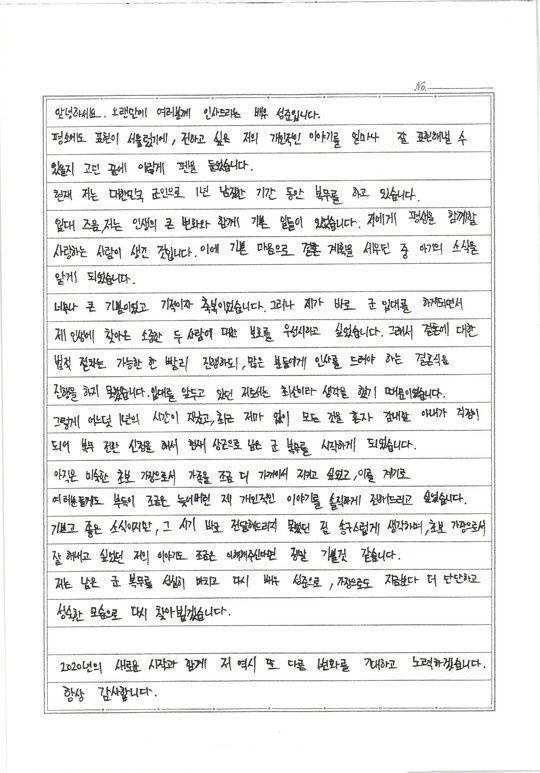 No.
안녕하세요. 오랜만에 여러분께 인사드리는 배우 성준입니다.
평소에도 표현이 서툴렀기에, 전하고 싶은 저의 개인적인 이야기를 얼마나 잘 표현해낼 수
있을지 고민 끝에 이렇게 펜을 들었습니다.
현재 저는 대한민국 군인으로 1년 남짓한 기간 동안 복무를 하고 있습니다.
입대 즈음, 저는 인생의 큰 변화와 함께 기쁜 일들이 있었습니다. 저에게 평생을 함께할
사랑하는 사람이 생긴 것입니다. 이에 기쁜 마음으로 결혼 계획을 세우던 중 아기의 소식을
알게 되었습니다.
너무나 큰 기쁨이었고 기적이자 축복이었습니다. 그러나 제가 바로 군 입대를 하게되면서
제 인생에 찾아온 소중한 두 사람에 대한 보호를 우선시하고 싶었습니다. 그래서 결혼에 대한
법적 절차는 가능한 한 빨리 진행하되, 많은 분들에게 인사를 드려야 하는 결혼식은
진행을 하지 못했습니다. 입대를 앞두고 있던 저로서는 최선이라 생각을 했기 때문이었습니다.
그렇게 어느덧 1년의 시간이 지났고, 최근 저마 없이 모든 것을 혼자 감내할 아내가 걱정이
되어 복무 전환 신청을 해서 현재 상근으로 남은 군 복무를 시작하게 되었습니다.
아직은 미숙한 초보 가장으로서 가족을 조금 더 가까이서 지키고 싶었고, 이를 계기로
여러분들께도 부득이 조금은 늦어버린 제 개인적인 이야기를 솔직하게 전해드리고 싶었습니다.
기쁘고 좋은 소식이지만, 그 시기 바로 전달해드리지 못했던 점 송구스럽게 생각하며, 초보 가장으로서
잘 해내고 싶었던 저의 이야기도 조금은 이해해주신다면 정말 기쁠것 같습니다.
저는 남은 군 복무를 성실히 마치고 다시 배우 성준으로, 가장으로도 지금보다 더 단단하고
성숙한 모습으로 다시 찾아뵙겠습니다.
2020년의 새로운 시작과 함께 저 역시 또 다른 변화를 기대하고 노력하겠습니다.
항상 감사합니다.